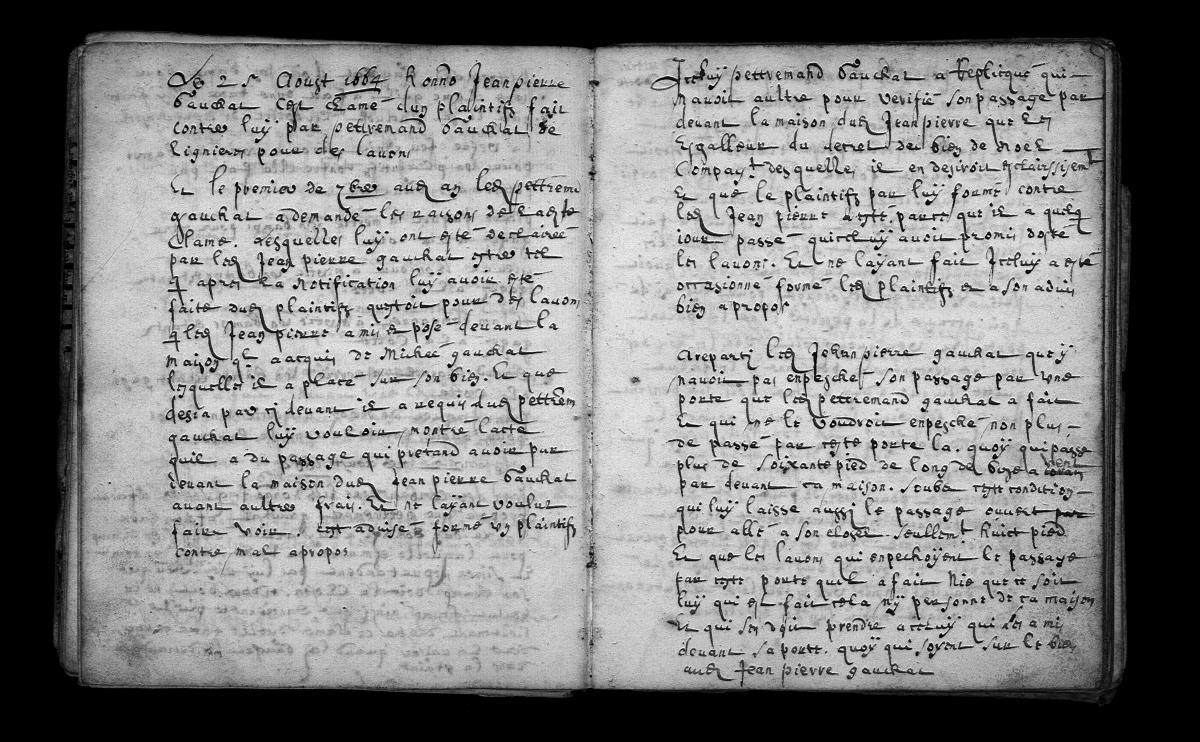 Le 25 Aoust 1664 Honno Jean pierre
Gauchat C'est clamé d'un plaintifz fait
contre luy par pettremand Gauchat de
Lignieres pour des lavons
Et le premier de 7bre aud an led pettremd
gauchat a demandé les raisons de
Clame. Lesquelles luy ont esté declairée
par led Jean pierre gauchat estre tel
q apres La Notification luy avoir esté
faite dud plaintifz questoit pour des lavons
q led Jean pierre a mis et posé devant la
maison ql a acquis de Michée gauchat
lesquelles il a placé sur son bien. Et que
desja par cy devant il a requis dud pettremd
gauchat luy vouloir montré lacte
quil a du passage qui pretand avoir par
devant la maison dud Jean pierre Gauchat
avant aultres frais. Et ne layant voulut
faire voir. est advisé formé un plaintifz
contre mal apropos
Iceluy pettremand Gauchat a Replicqué qui
navoit aultre pour verifié son passage par
devant la maison dud Jean pierre que les
Esgalleur du decret des bien de Noel
Compayt desquelles il en desiroit Esclairsisemt
Et que le plaintifz par luy formé contre
led Jean pierre a esté parce que il a quelq
jour passé quiceluy avoit promis dosté
les lavons. Et ne layant fait Iceluy a esté
occasionné formé led plaintifz et a son advis
bien apropos
A reparty led Jehan pierre gauchat que y
navoit pas enpesché son passage par une
porte que led pettremand gauchat a fait
Et qui ne le voudroit enpesché non plus
de passé par ceste porte la. quoy qui passe
plus de soixante pied de long de bize a vent
par devant ca maison. Soubz ceste condition
qui luy laisse aussi le passage ouvert par
pour allé a son closez. seullemt huict pied
Et que les lavons qui enpechoyent le passage
par ceste porte quil a fait Nie que ce soit
luy qui est fait cela ny personne de ca maison
Et qui sen doit prendre a celuy qui les a mis
devant sa porte. quoy qui soyent sur le bien
aud Jean pierre gauchat